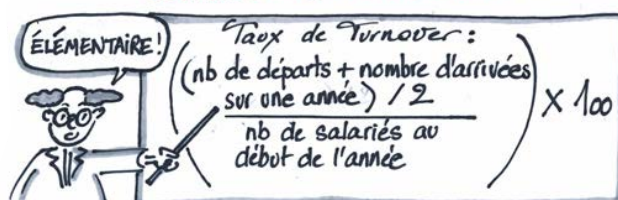 ÉLÉMENTAIRE!
Taux de Turnover:
(nb de départs + nombre d'arrivées
sur une année) / 2
nb de salariés au
début de l'année
X 100